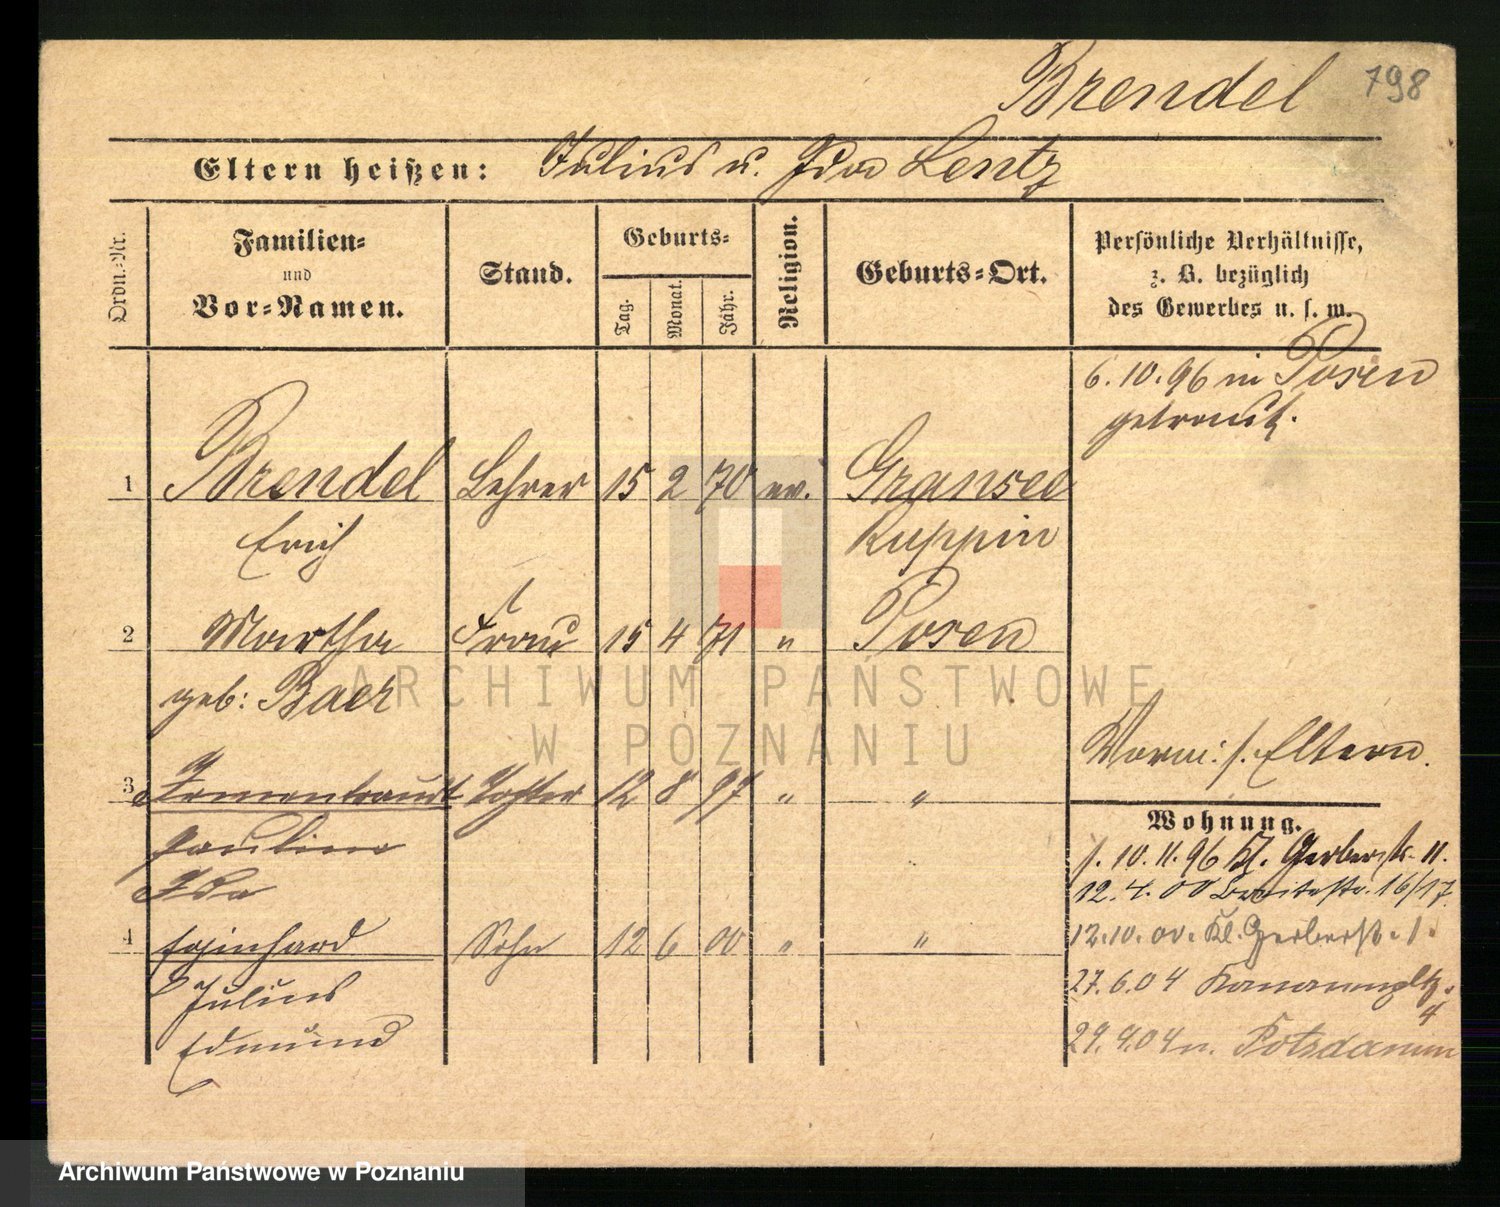 Brendel 798
Eltern heißen: Julius u. Ida Lentz
Ordn.-Nr.
Familien-
und
Vor-Namen.
Stand.
Geburts-
Tag. Monat. Jahr.
Religion.
Geburts-Ort.
Persönliche Verhältnisse,
z. B. bezüglich
des Gewerbes u. s. w.
6.10.96 in Posen
getraut.
1 Brendel Lehrer 15 2 70 ev. Gransee
Erich Ruppin
2 Martha Frau 15 4 71 " Posen
geb: Baer
ARCHIWUM PAŃSTWOWE
W POZNANIU
Vorm: s. Eltern.
3 Tochter 12 8 97 " "
Pauline
Ida
Wohnung.
s. 10.11.96 Kl. Gerberstr. 11.
12.4.00 Breitestr. 16/17
4 Sohn 12 6 00 " "
Julius
Edmund
12.10.00. Kl. Gerberstr. 1.
27.6.04 4
29.9.04 n. Potsdam
Archiwum Państwowe w Poznaniu